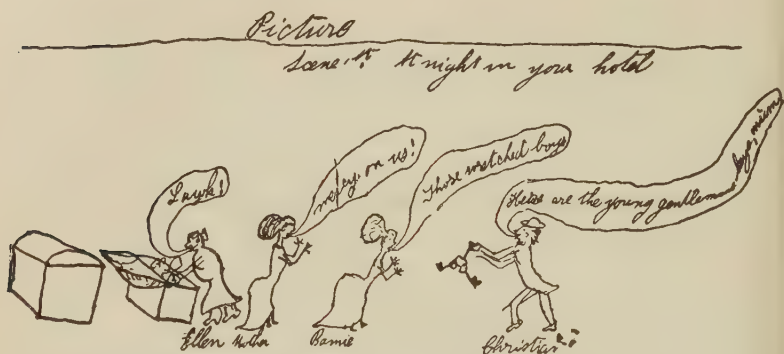 Picture
Scene 1st. At night in your hotel
Lawk!
mercy on us!
Those wretched boys
Heres are the young gentlemens legs, mum
Ellen Mother Bamie Christian